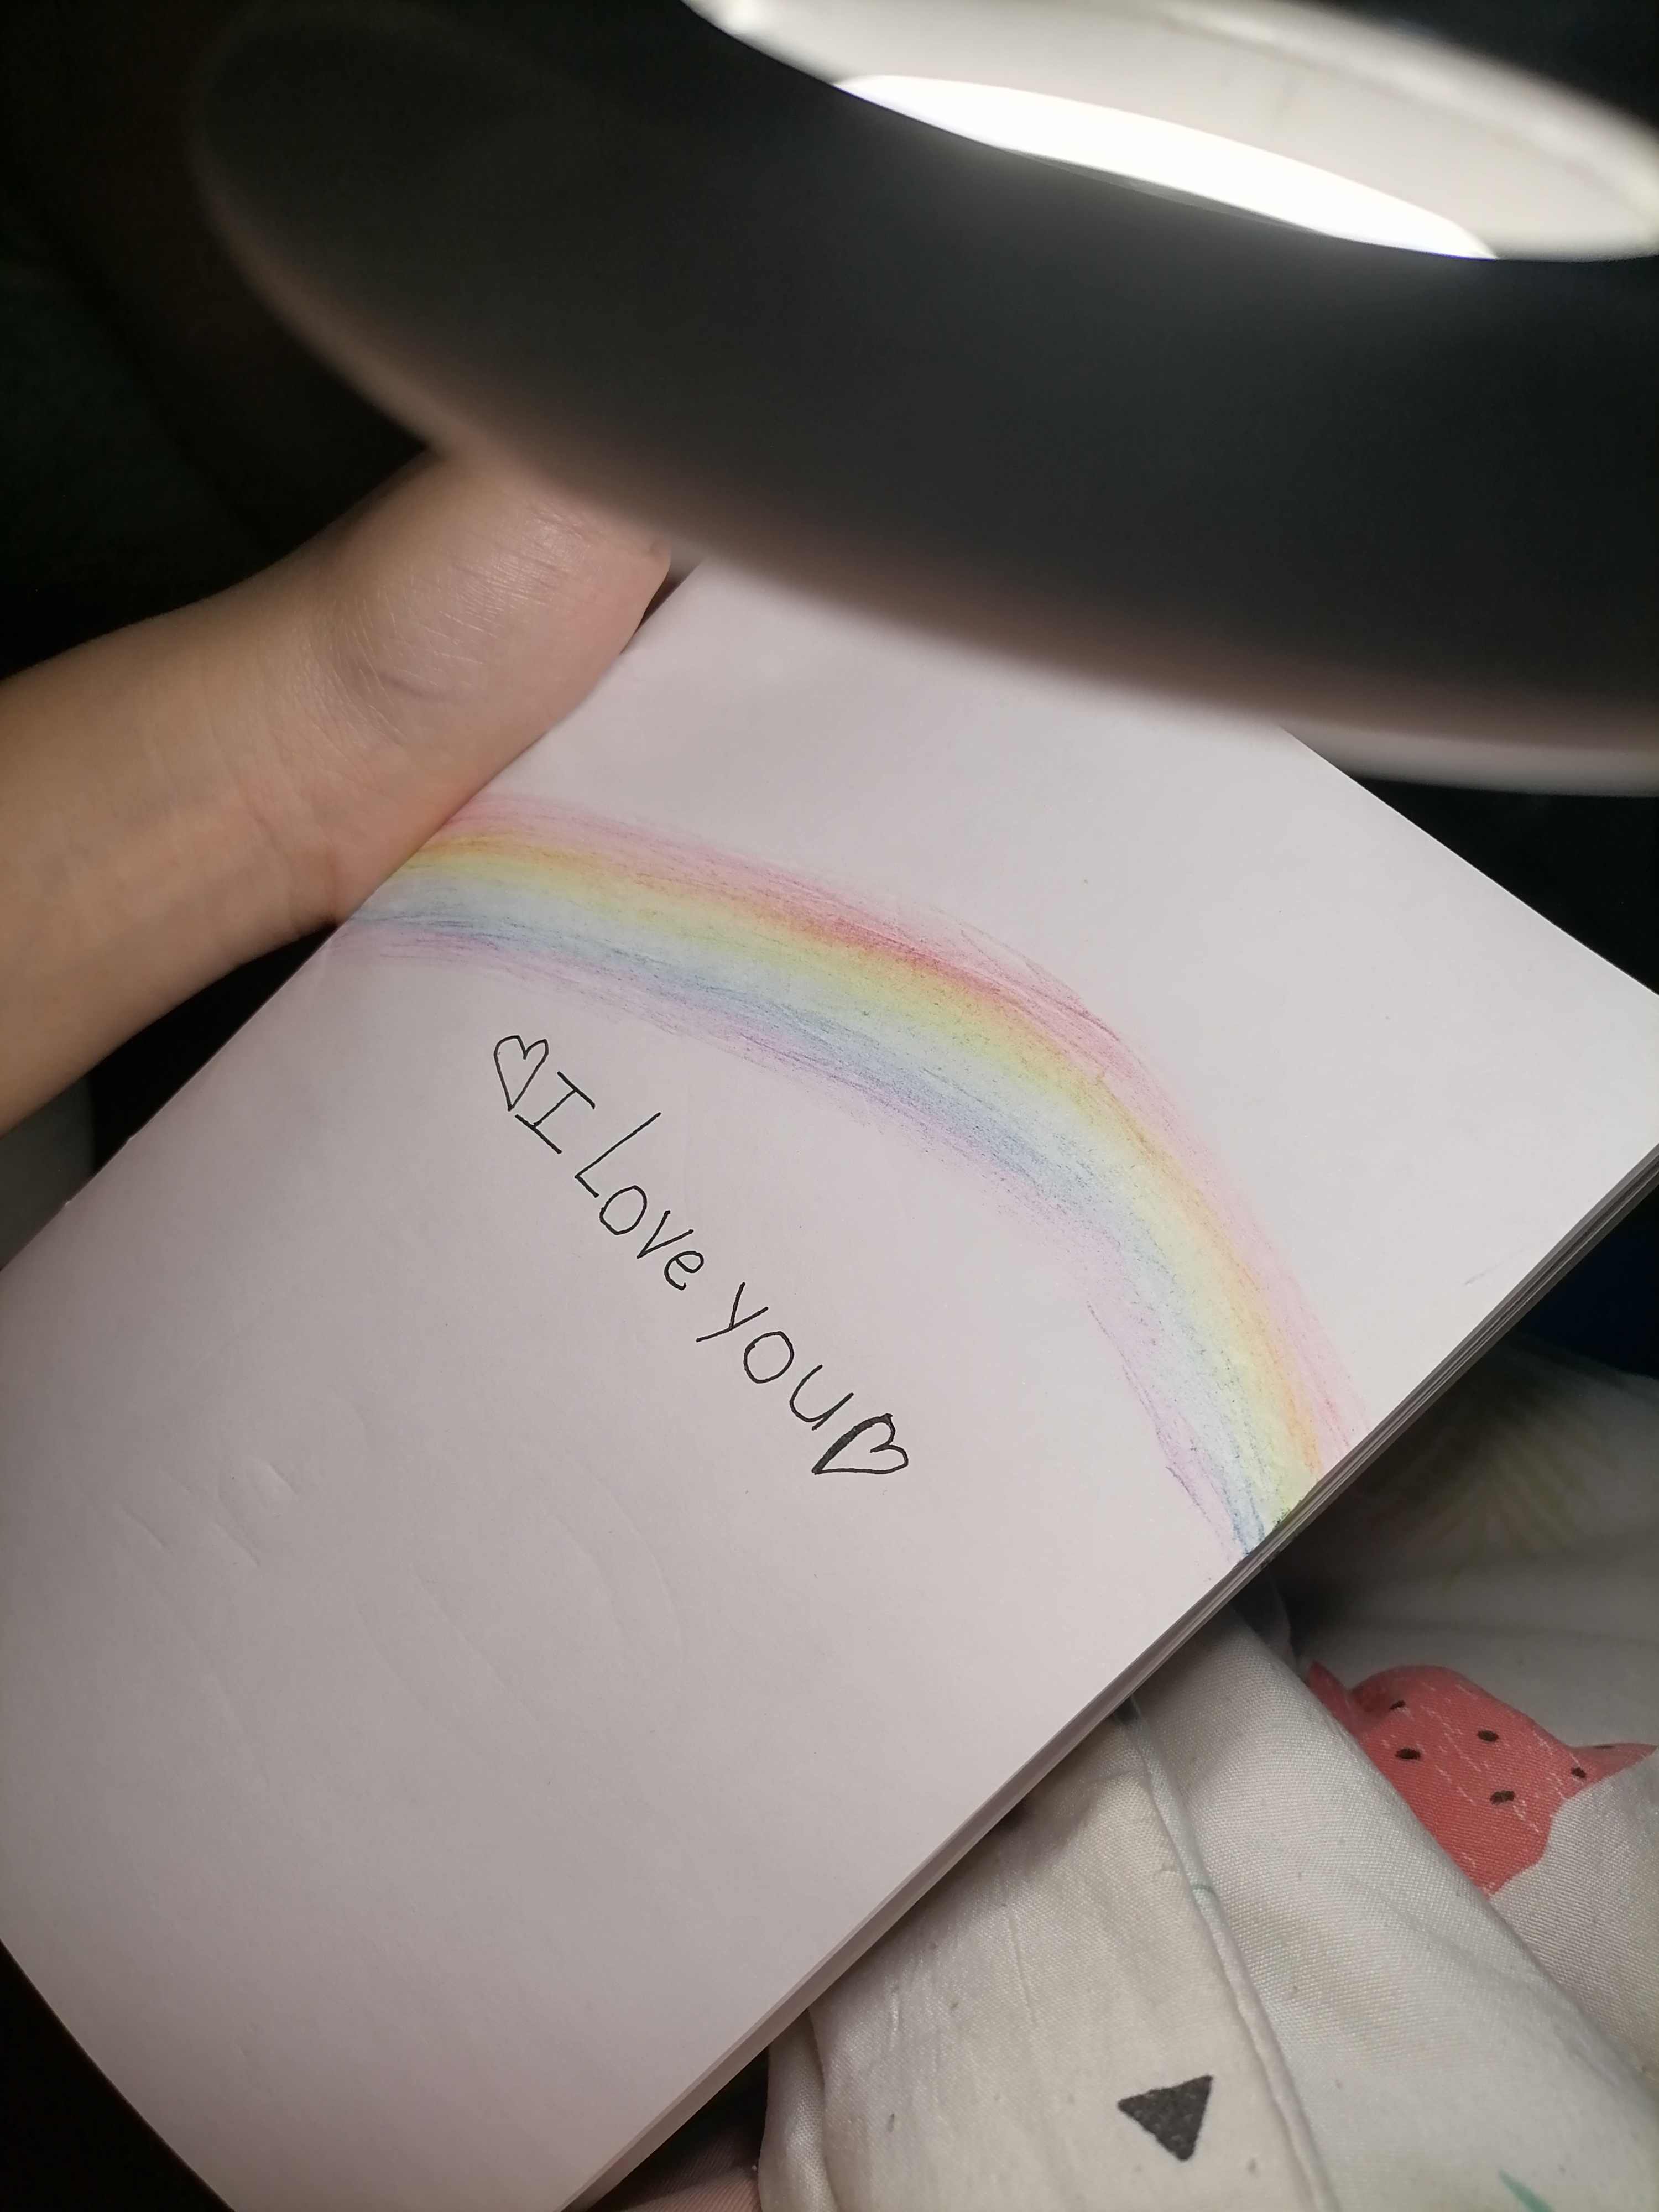 ♡I Love you♡